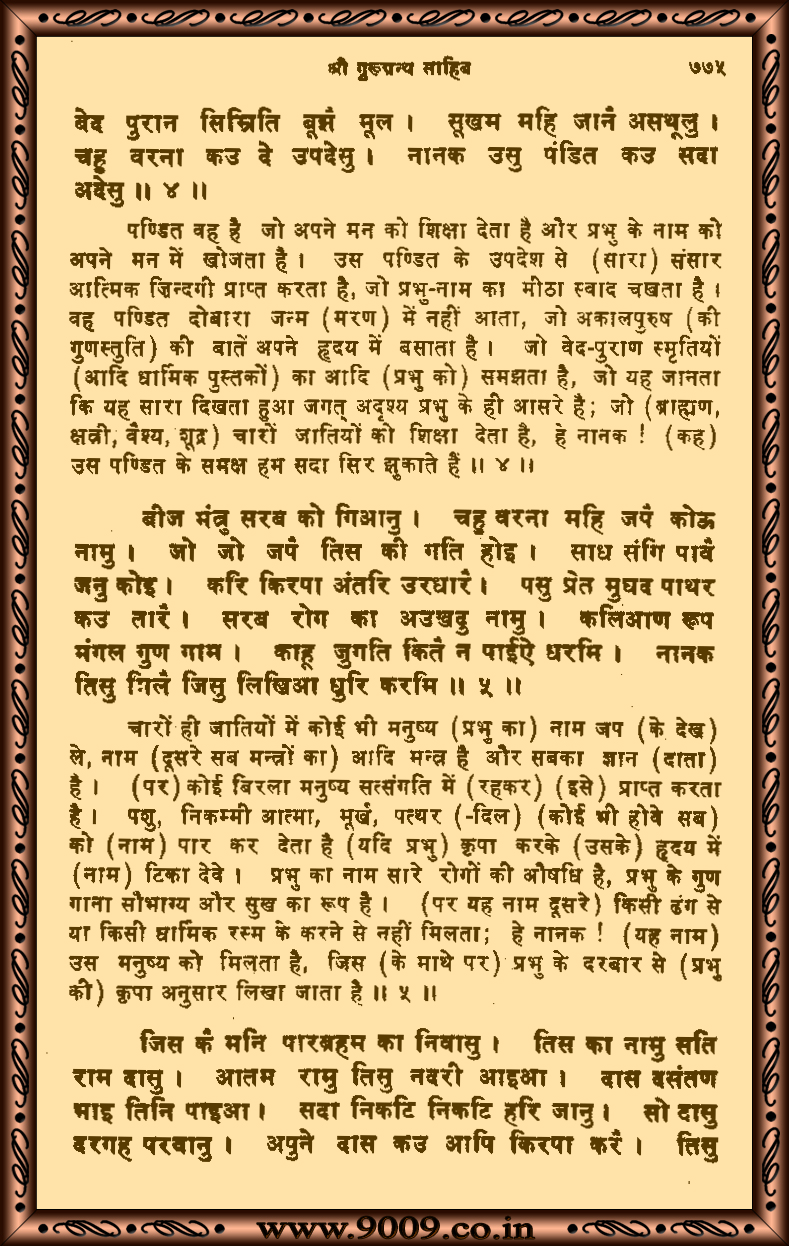 श्री गुरूग्रन्थ साहिब ७७५
बेद पुरान सिम्रिति बूझै मूल । सूखम महि जानै असथूलु ।
चहु वरना कउ दे उपदेसु । नानक उसु पंडित कउ सदा
अदेसु ॥ ४ ॥
पण्डित वह है जो अपने मन को शिक्षा देता है और प्रभु के नाम को
अपने मन में खोजता है । उस पण्डित के उपदेश से (सारा) संसार
आत्मिक ज़िन्दगी प्राप्त करता है, जो प्रभु-नाम का मीठा स्वाद चखता है ।
वह पण्डित दोबारा जन्म (मरण) में नहीं आता, जो अकालपुरुष (की
गुणस्तुति) की बातें अपने हृदय में बसाता है । जो वेद-पुराण स्मृतियों
(आदि धार्मिक पुस्तकों) का आदि (प्रभु को) समझता है, जो यह जानता
कि यह सारा दिखता हुआ जगत् अदृश्य प्रभु के ही आसरे है; जो (ब्राह्मण,
क्षत्री, वैश्य, शूद्र) चारों जातियों को शिक्षा देता है, हे नानक ! (कह)
उस पण्डित के समक्ष हम सदा सिर झुकाते हैं ॥ ४ ॥
बीज मंत्रु सरब को गिआनु । चहु वरना महि जपै कोऊ
नामु । जो जो जपै तिस की गति होइ । साध संगि पावै
जनु कोइ । करि किरपा अंतरि उरधारै । पसु प्रेत मुघद पाथर
कउ तारै । सरब रोग का अउखदु नामु । कलिआण रूप
मंगल गुण गाम । काहू जुगति कितै न पाईऐ धरमि । नानक
तिसु मिलै जिसु लिखिआ धुरि करमि ॥ ५ ॥
चारों ही जातियों में कोई भी मनुष्य (प्रभु का) नाम जप (के देख)
ले, नाम (दूसरे सब मन्त्रों का) आदि मन्त्र है और सबका ज्ञान (दाता)
है । (पर) कोई बिरला मनुष्य सत्संगति में (रहकर) (इसे) प्राप्त करता
है । पशु, निकम्मी आत्मा, मूर्ख, पत्थर (-दिल) (कोई भी होवे सब)
को (नाम) पार कर देता है (यदि प्रभु) कृपा करके (उसके) हृदय में
(नाम) टिका देवे । प्रभु का नाम सारे रोगों की औषधि है, प्रभु के गुण
गाना सौभाग्य और सुख का रूप है । (पर यह नाम दूसरे) किसी ढंग से
या किसी धार्मिक रस्म के करने से नहीं मिलता; हे नानक ! (यह नाम)
उस मनुष्य को मिलता है, जिस (के माथे पर) प्रभु के दरबार से (प्रभु
की) कृपा अनुसार लिखा जाता है ॥ ५ ॥
जिस कै मनि पारब्रहम का निवासु । तिस का नामु सति
राम दासु । आतम रामु तिसु नदरी आइआ । दास दसंतण
भाइ तिनि पाइआ । सदा निकटि निकटि हरि जानु । सो दासु
दरगह परवानु । अपुने दास कउ आपि किरपा करै । तिसु
www.9009.co.in